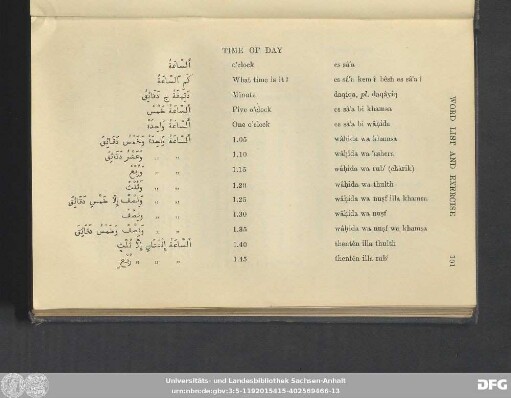 TIME OF DAY
اَلسَّاعَةُ o'clock es sā'a
كَمِ ٱلسَّاعَةُ What time is it?
دَقِيقَة ج دَقَائِق Minute daqīqa, pl. daqāyiq
اَلسَّاعَةُ خَمْس Five o'clock es sā'a bi khamsa
اَلسَّاعَةُ وَاحِدَة One o'clock es sā'a bi wāḥida
اَلسَّاعَةُ وَاحِدَة وَخَمْس دَقَائِق 1.05 wāḥida wa khamsa
" " وَعَشْر دَقَائِق 1.10 wāḥida wa 'ashera
" " وَرُبْع 1.15 wāḥida wa rub' (chārik)
" " وَثُلْث 1.20 wāḥida wa thulth
" " وَنِصْف إِلَّا خَمْس دَقَائِق 1.25 wāḥida wa nuṣf illa khamsa
" " وَنِصْف 1.30 wāḥida wa nuṣf
" " وَنِصْف وَخَمْس دَقَائِق 1.35 wāḥida wa nuṣf wa khamsa
اَلسَّاعَةُ إِلَّا ثُلْث 1.40 thentēn illa thulth
" " رُبْع 1.45 thentēn illa rub'
WORD LIST AND EXERCISE
191
Universitäts- und Landesbibliothek Sachsen-Anhalt
urn:nbn:de:gbv:3:5-1192015415-402569466-13
DFG